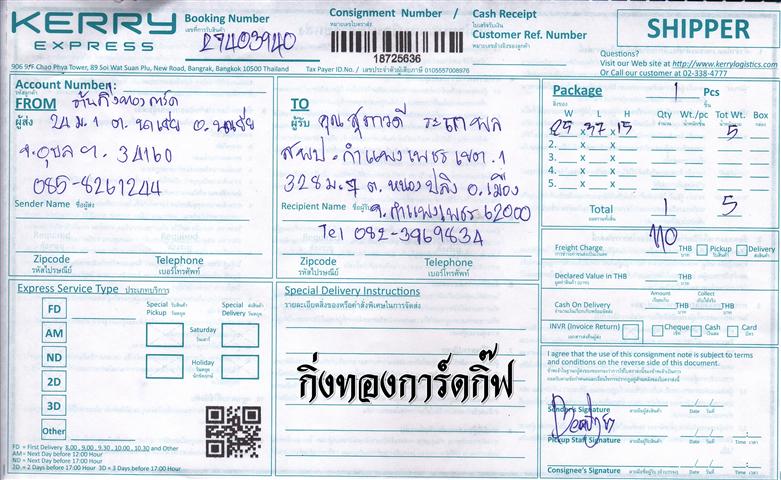 KERRY
EXPRESS
Booking Number
เลขที่การรับสินค้า
27403940
Consignment Number /
หมายเลขใบตราส่ง
18725636
Cash Receipt
ใบเสร็จรับเงิน
Customer Ref. Number
หมายเลขอ้างอิงของลูกค้า
SHIPPER
Questions?
Visit our Web site at http://www.kerrylogistics.com
Or Call our customer at 02-338-4777
906 9/F Chao Phya Tower, 89 Soi Wat Suan Plu, New Road, Bangrak, Bangkok 10500 Thailand
Tax Payer ID.No. / เลขประจำตัวผู้เสียภาษี 0105557008976
Account Number:
FROM
ผู้ส่ง
ร้านกิ่งทองการ์ด
24 ม.1 ต.นาเยีย อ.นาเยีย
จ.อุบลฯ. 34160
085-8261244
Sender Name ชื่อผู้ส่ง
Zipcode
รหัสไปรษณีย์
Telephone
เบอร์โทรศัพท์
TO
ผู้รับ
คุณ สุภาวดี
สพป.กำแพงเพชร เขต.1
328 ม.7 ต.หนองปลิง อ.เมือง
Recipient Name ชื่อผู้รับ
จ.กำแพงเพชร 62000
Tel 082-3969834
Zipcode
รหัสไปรษณีย์
Telephone
เบอร์โทรศัพท์
Package
1 Pcs
สิ่งของ
ชิ้น
W L H Qty Wt./pc Tot Wt. Box
25 x 37 x 15 5
2. x x
3. x x
4. x x
5. x x
Total 1 5
Freight Charge
THB
Pickup
Delivery
Declared Value in THB
THB
Amount
Collect
Cash On Delivery
THB
THB
INVR (Invoice Return)
Cheque
Cash
Card
Express Service Type ประเภทบริการ
FD
AM
ND
2D
3D
Other
Special Pickup
Special Delivery
Saturday
วันเสาร์
Holiday
วันหยุดนักขัตฤกษ์
FD = First Delivery 8.00 , 9.00 , 9.30 , 10.00 , 10.30 and Other
AM = Next Day before 12:00 Hour
ND = Next Day before 17:00 Hour
2D = 2 Days before 17:00 Hour 3D = 3 Days before 17:00 Hour
Special Delivery Instructions
รายละเอียดสิ่งของหรือคำสั่งพิเศษในการจัดส่ง
กิ่งทองการ์ดกิ๊ฟ
I agree that the use of this consignment note is subject to terms
and conditions on the reverse side of this document.
Sender's Signature
Date / วันที่
Pickup Staff Signature
Date / วันที่
Time เวลา
Consignee's Signature
Date / วันที่
Time เวลา